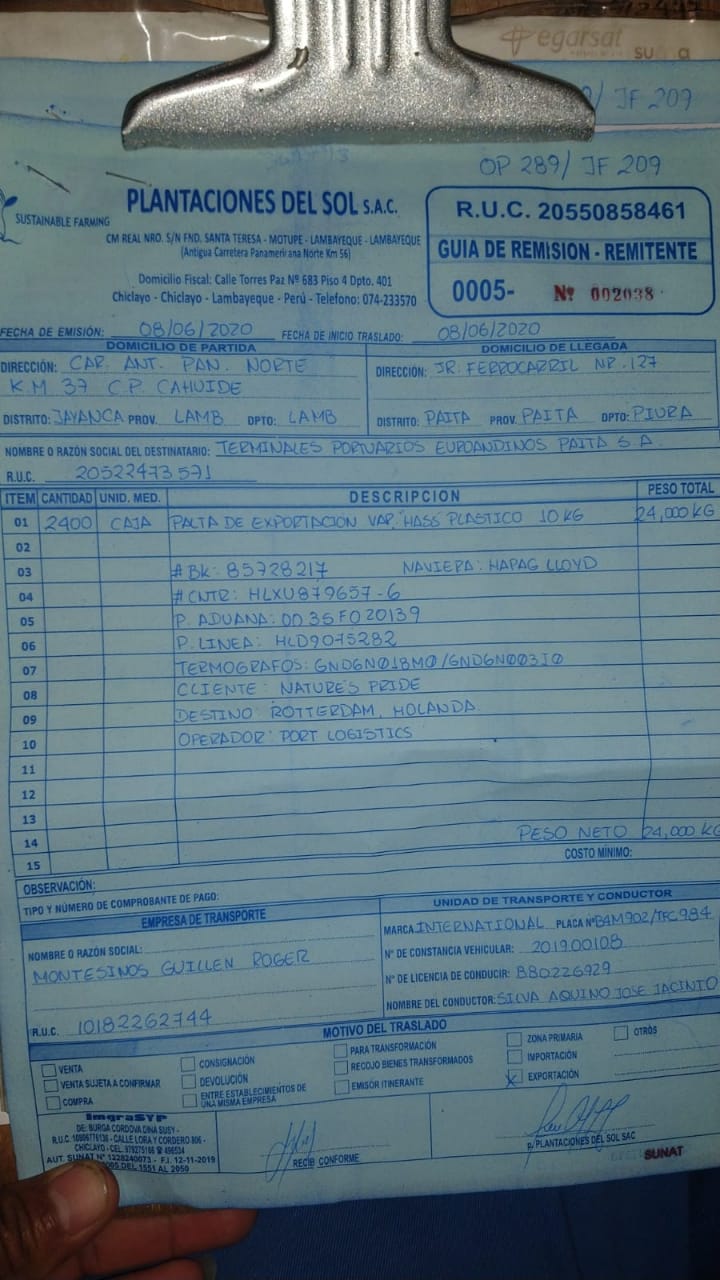 egarsat
JF 209
OP 289/ JF 209
SUSTAINABLE FARMING
PLANTACIONES DEL SOL S.A.C.
CM REAL NRO. S/N FND. SANTA TERESA - MOTUPE - LAMBAYEQUE - LAMBAYEQUE
(Antigua Carretera Panamericana Norte Km 56)
Domicilio Fiscal: Calle Torres Paz Nº 683 Piso 4 Dpto. 401
Chiclayo - Chiclayo - Lambayeque - Perú - Telefono: 074-233570
R.U.C. 20550858461
GUIA DE REMISION - REMITENTE
0005- Nº 002038
FECHA DE EMISIÓN: 08/06/2020 FECHA DE INICIO TRASLADO: 08/06/2020
DOMICILIO DE PARTIDA
DIRECCIÓN: CAR. ANT. PAN. NORTE
KM 37 C.P. CAHUIDE
DISTRITO: JAYANCA PROV. LAMB DPTO: LAMB
DOMICILIO DE LLEGADA
DIRECCIÓN: JR. FERROCARRIL NR. 127
DISTRITO: PAITA PROV. PAITA DPTO: PIURA
NOMBRE O RAZÓN SOCIAL DEL DESTINATARIO: TERMINALES PORTUARIOS EUROANDINOS PAITA S.A.
R.U.C. 20522473571
ITEM CANTIDAD UNID. MED. DESCRIPCION PESO TOTAL
01 2400 CAJA PALTA DE EXPORTACIÓN VAR. HASS PLASTICO 10 KG 24,000 KG
02
03 #BK: 85728217 NAVIERA: HAPAG LLOYD
04 #CNTR: HLXU879657-6
05 P. ADUANA: 0035F020139
06 P. LINEA: HLD9075282
07 TERMOGRAFOS: GND6N018M0/GND6N003J0
08 CLIENTE: NATURE'S PRIDE
09 DESTINO: ROTTERDAM, HOLANDA
10 OPERADOR: PORT LOGISTICS
11
12
13
14 PESO NETO 24,000 KG
15 COSTO MÍNIMO:
OBSERVACIÓN:
TIPO Y NÚMERO DE COMPROBANTE DE PAGO:
EMPRESA DE TRANSPORTE
NOMBRE O RAZÓN SOCIAL:
MONTESINOS GUILLEN ROGER
R.U.C. 10182262744
UNIDAD DE TRANSPORTE Y CONDUCTOR
MARCA INTERNATIONAL PLACA Nº B4M902/TFC984
Nº DE CONSTANCIA VEHICULAR: 201900108
Nº DE LICENCIA DE CONDUCIR: B80226929
NOMBRE DEL CONDUCTOR: SILVA AQUINO JOSE JACINTO
MOTIVO DEL TRASLADO
VENTA
VENTA SUJETA A CONFIRMAR
COMPRA
CONSIGNACIÓN
DEVOLUCIÓN
ENTRE ESTABLECIMIENTOS DE
UNA MISMA EMPRESA
PARA TRANSFORMACIÓN
RECOJO BIENES TRANSFORMADOS
EMISOR ITINERANTE
ZONA PRIMARIA
IMPORTACIÓN
X EXPORTACIÓN
OTROS
ImgraSYP
DE: BURGA CORDOVA DINA SUSY -
R.U.C. 10806776136 - CALLE LORA Y CORDERO 806 -
CHICLAYO - CEL. 979275166 ☎ 496534
AUT. SUNAT Nº 1228240073 - F.I. 12-11-2019
DEL 1551 AL 2050
RECIBÍ CONFORME
p/ PLANTACIONES DEL SOL SAC
SUNAT